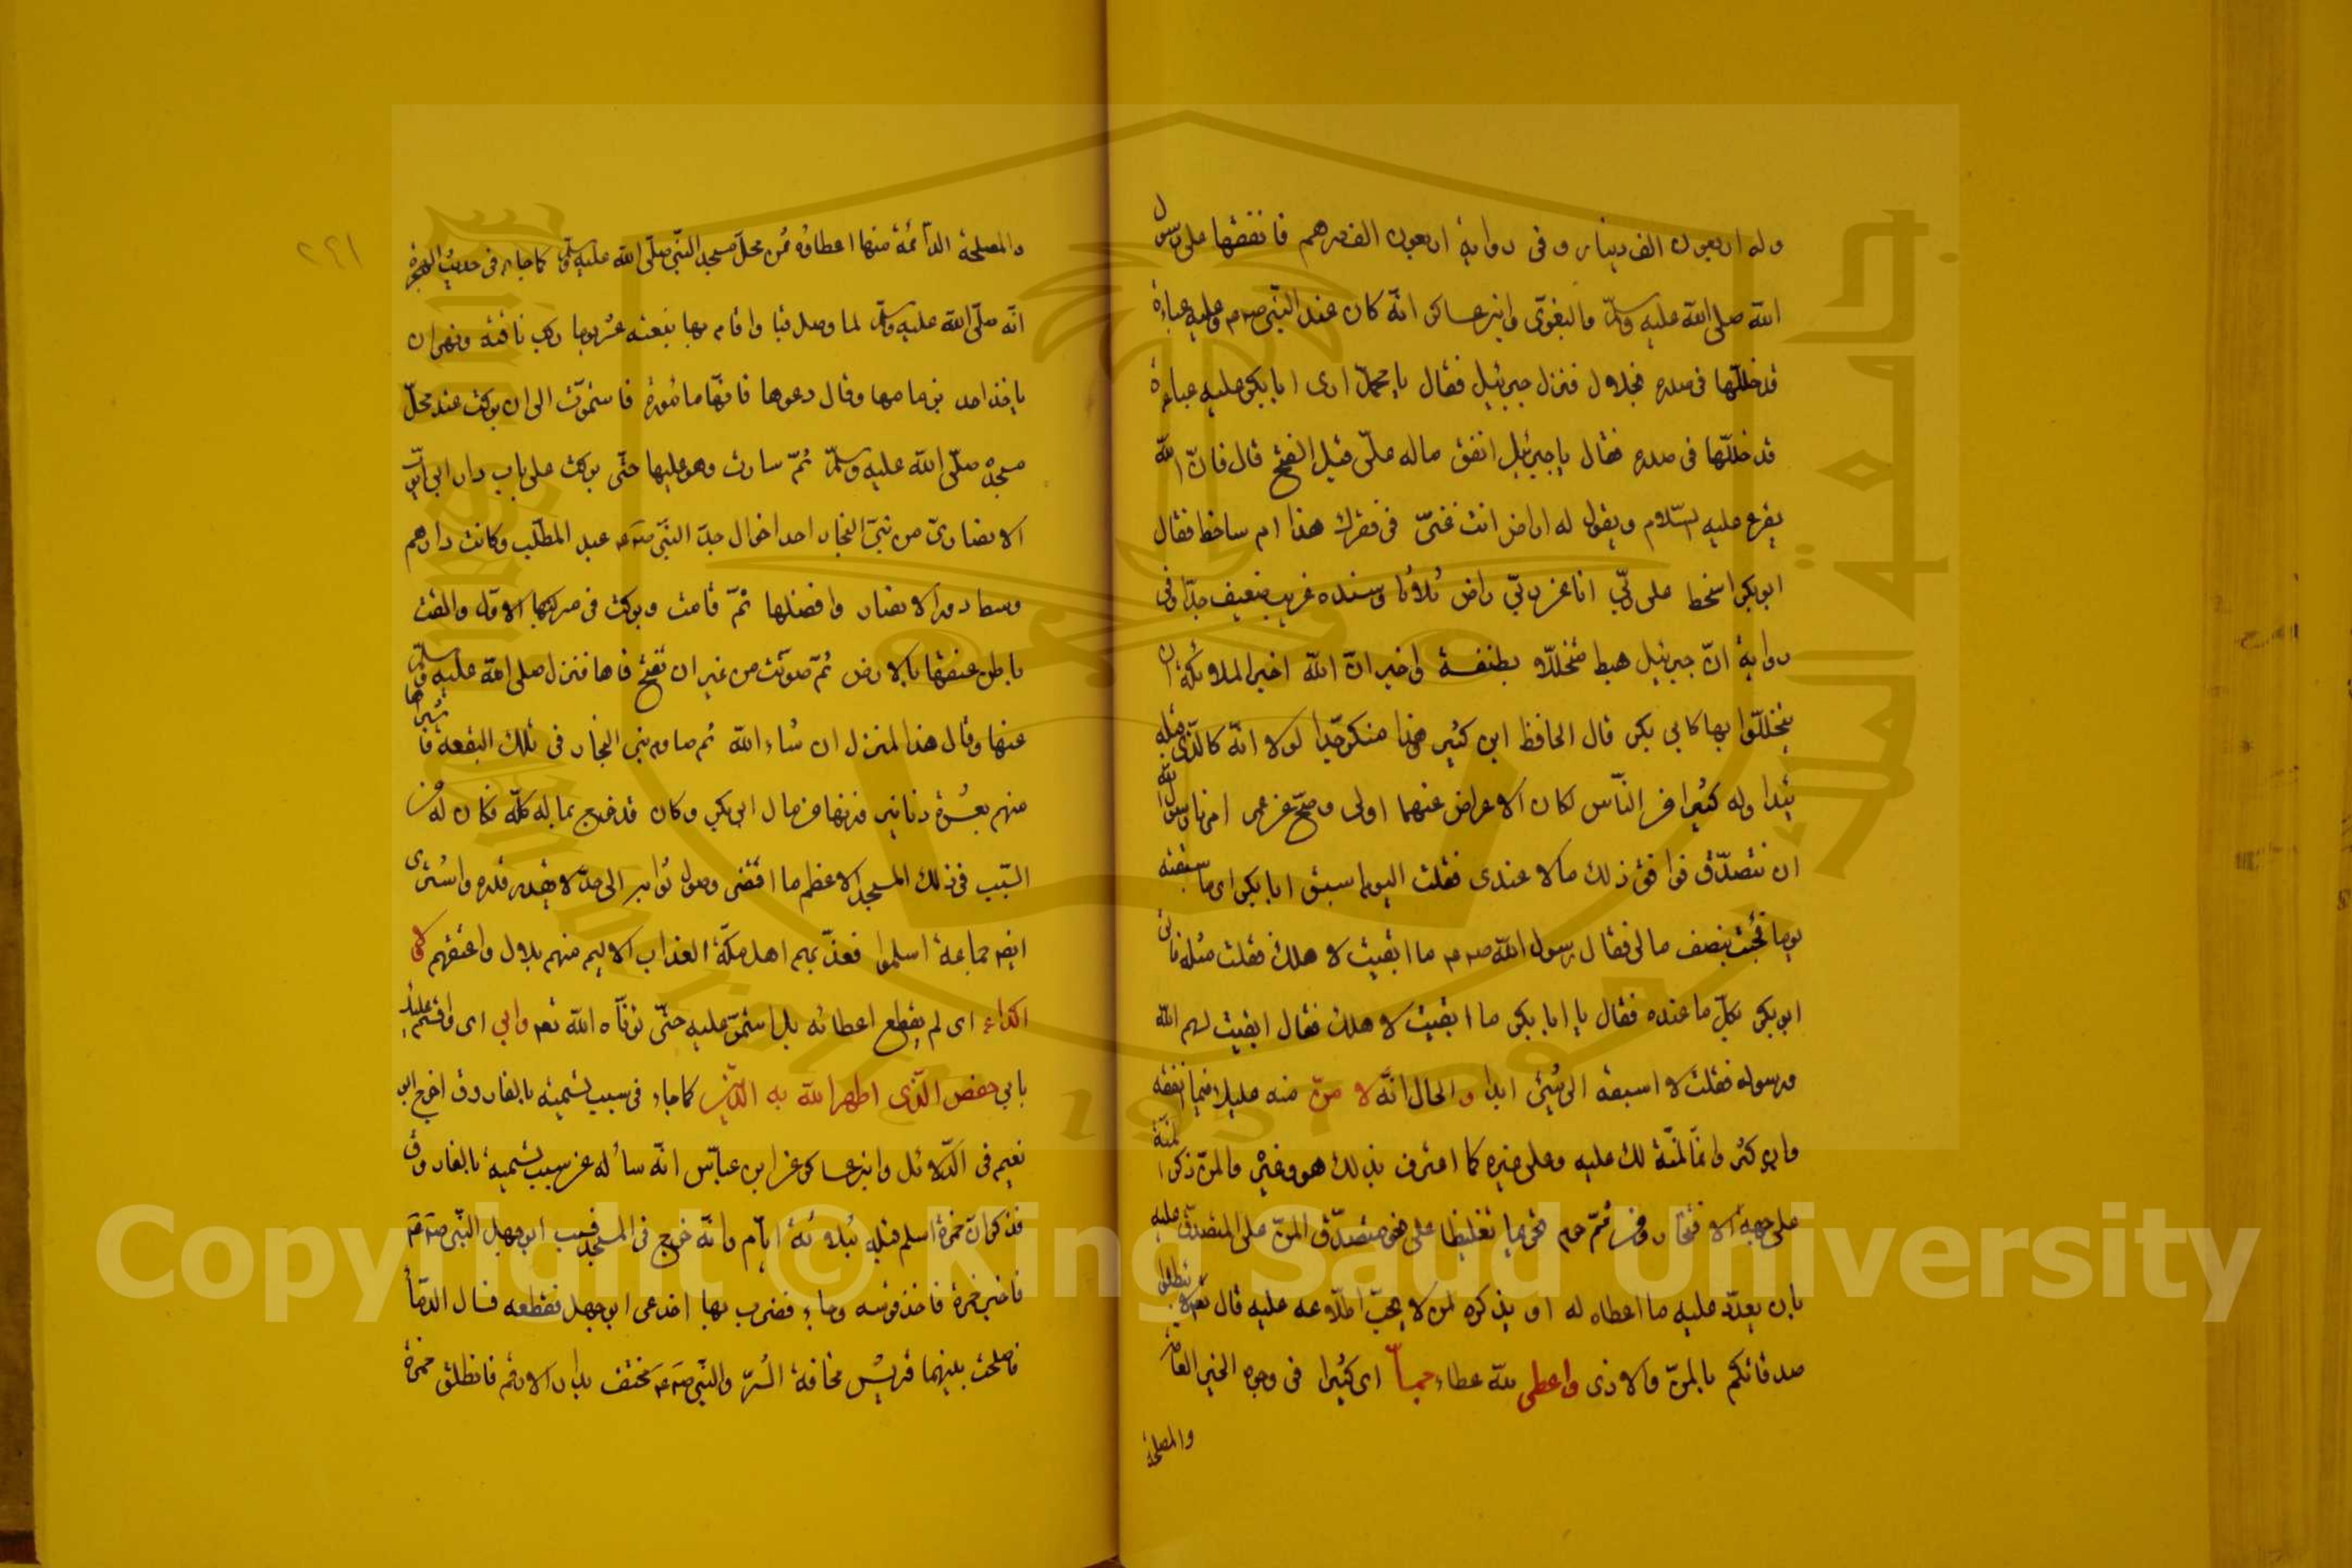 وله اربعون الف دينار وفى رواية اربعون الف درهم فانفقها على رسول
الله صلى الله عليه وسلم والبغوى وابن عساكر انّه كان عند النّبى صم وعليه عباءة
قد خللّها فى صدره بخلال فنزل جبرئيل فقال يا محمّد ارى ابا بكر عليه عباءة
قد خللّها فى صدره فقال يا جبرئيل انفق ماله علىّ قبل الفتح قال فانّ الله
يقرء عليه السّلام ويقول له اراض انت عنّى فى فقرك هذا ام ساخط فقال
ابو بكر اسخط على ربّى انا عن ربّى راض ثلاثا وسنده غريب ضعيف جدّا وفى
رواية انّ جبرئيل هبط متخللا بطنفسة واخبر انّ الله اخبر الملائكة ان
يتخللّوا بها كابى بكر قال الحافظ ابن كثير هذا منكر جدّا لولا انّه كالّذى قبله
يتداوله كثير من النّاس لكان الاعراض عنهما اولى وصحّ عن عمر امرنا رسول الله
ان نتصدّق فوافق ذلك مالا عندى فقلت اليوم اسبق ابا بكر اى ما سبقته
يوما فجئت بنصف مالى فقال رسول الله صم ما ابقيت لاهلك فقلت مثله فاتى
ابو بكر بكلّ ما عنده فقال يا ابا بكر ما ابقيت لاهلك فقال ابقيت لهم الله
ورسوله فقلت لا اسبقه الى شئ ابدا و الحال انّه لا منّ منه عليك فيما انفقه
وان كثر وانّما المنّة لك عليه وعلى غيره كما اعترف بذلك هو وغيره والمنّ ذكر المنّة
على جهة الافتخار ومن ثمّ حرم تحريما تغليظا على نحو متصدّق المنّ على المتصدّق عليه
بان يعدّد عليه ما اعطاه له او يذكره لمن لا يحبّ اطّلاعه عليه قال تعه لا تبطلوا
صدقاتكم بالمنّ والاذى واعطى لله عطاء جمّاً اى كثيرا فى وجوه الخير العامّة
والمصلحة
٢٩١
والمصلحة الدّائمة منها اعطاؤه ثمن محلّ مسجد النّبى صلّى الله عليه وسلّم كما جاء فى حديث الهجرة
انّه صلّى الله عليه وسلم لما وصل قبا واقام بها بضعة عشر يوما ركب ناقته ونهى ان
ياخذ احد بزمامها وقال دعوها فانّها مامورة فاستمرّت الى ان بركت عند محلّ
مسجده صلّى الله عليه وسلم ثمّ سارت وهو عليها حتّى بركت على باب دار ابى ايّوب
الانصارىّ من بنى النّجار احد اخوال جدّ النّبى صم عبد المطّلب وكانت دارهم
وسط دور الانصار وافضلها ثمّ قامت وبركت فى مبركها الاوّل والقت
باطن عنقها بالارض ثمّ صوّتت من غير ان تفتح فاها فنزل صلى الله عليه وسلّم
عنها وقال هذا المنزل ان شاء الله ثم ساوم بنى النجار فى تلك البقعة فاشتراها
منهم بعشرة دنانير وزنها من مال ابى بكر وكان قد خرج بماله كلّه فكان له من
السّبب فى ذلك المسجد الاعظم ما اقتضى وصول ثوابه الى حدّ لا يقدر قدره واشترى
ايضا جماعة اسلموا فعذّبهم اهل مكّة العذاب الاليم منهم بلال واعتقهم كلّ
اكداء اى لم يقطع اعطائه بل استمرّ عليه حتّى توفّاه الله تعه وابى اى واقسم عليك
بابى حفص الّذى اظهر الله به الدّين كما جاء فى سبب تسميته بالفاروق اخرج ابو
نعيم فى الدّلائل وابن عساكر عن ابن عبّاس انّه ساله عن سبب تسميته بالفاروق
فذكر انّ حمزة اسلم قبله بثلاثة ايّام وانّه خرج فى المسجد فسب ابو جهل النّبى صم
فاخبر حمزة فاخذ قوسه وجاء فضرب بها اخدعى ابو جهل فقطعه فسال الدّماء
فاصلحت بينهما قريش مخافة الشّرّ والنّبى صم مختف بدار الارقم فانطلق حمزة
Copyright © King Saud University
King Saud University
جامعة الملك سعود
1957